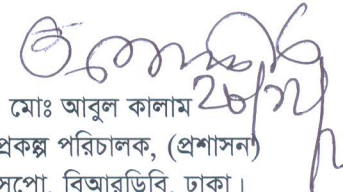 ২০/১২
মোঃ আবুল কালাম
প্রকল্প পরিচালক, (প্রশাসন)
সপো, বিআরডিবি, ঢাকা।